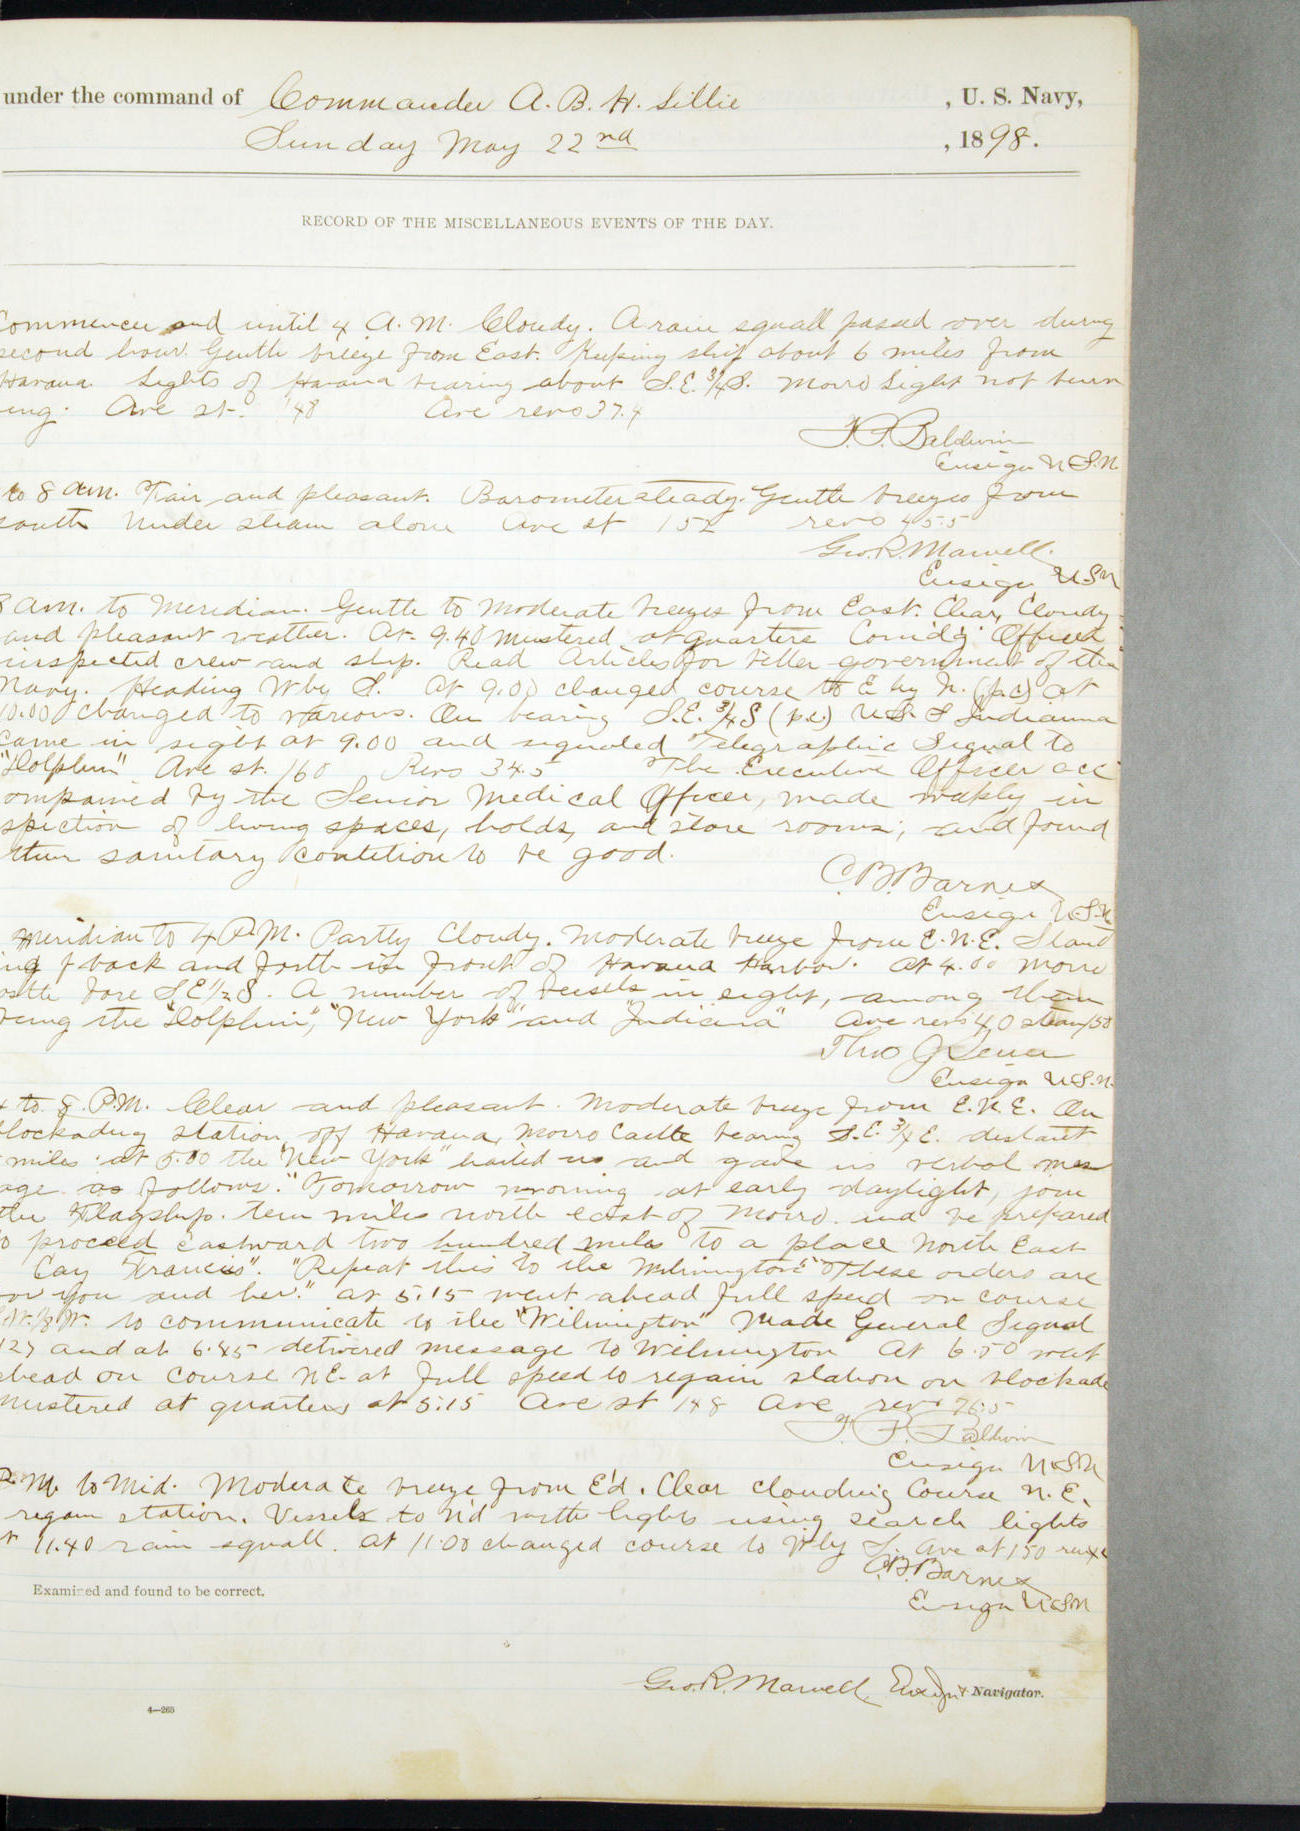 under the command of Commander A. B. H. Lillie , U. S. Navy,
Sunday May 22nd , 1898.
RECORD OF THE MISCELLANEOUS EVENTS OF THE DAY.
Commences and until 4 A. M. Cloudy. A rain squall passed over during
second hour. Gentle breeze from East. Keeping ship about 6 miles from
Havana Lights of Havana bearing about S.E. 3/4 S. Morro Light not burn
ing. Ave st. 148 Ave revs 37.4
F. P. Baldwin
Ensign U.S.N.
to 8 am. Fair and pleasant. Barometer steady. Gentle breezes from
south Under steam alone Ave st 152 revs 45.5
Geo. R. Marvell.
Ensign USN
8 am. to Meridian. Gentle to Moderate breezes from East. Clear, Cloudy
and pleasant weather. At 9.40 mustered at quarters Comd'g Officer
inspected crew and ship. Read Articles for better government of the
Navy. Heading W by S. At 9.00 changed course to E by N. (p.c) at
10.00 changed to various. On bearing S.E. 3/4 S (p.c.) U.S. S Indianna
came in sight at 9.00 and signaled Telegraphic Signal to
"Dolphin" Ave st. 160 Revs 34.5 The Executive Officer acc
ompanied by the Senior Medical Officer, made weekly in
spection of living spaces, holds, and store rooms; and found
their sanitary condition to be good.
C. B. Barnes
Ensign U.S.N.
Meridian to 4 P.M. Partly Cloudy. Moderate breeze from E.N.E. Stand
ing back and forth in front of Havana Harbor. At 4.00 Morro
astle bore SE 1/2 S. A number of vessels in sight, among them
being the "Dolphin," "New York" and "Indiana" Ave revs 40 steam 150
Ensign U.S.N.
4 to 8 P.M. Clear and pleasant. Moderate breeze from E.N.E. On
blockading station off Havana, Morro Castle bearing S.E. 3/4 E. distant
miles. at 5.00 the "New York" hailed us and gave us verbal mes
age as follows. "Tomorrow morning at early daylight, join
the Flagship. ten miles north east of Morro. and be prepared
o proceed eastward two hundred miles to a place North East
Cay Francis". "Repeat this to the Wilmington" "These orders are
or you and her." at 5:15 went ahead full speed on course
W. 1/8 W. to communicate to the "Wilmington" Made General Signal
127 and at 6.45 delivered message to Wilmington At 6.50 went
ahead on course NE. at full speed to regain station on blockade
mustered at quarters at 5:15 Ave st 148 Ave revs 76.5
F. P. Baldwin
Ensign U.S.N
P. M. to Mid. Moderate breeze from E'd. Clear clouding Course N. E.
regain station. Vessels to N'd with lights using search lights
t 11.40 rain squall. At 11.00 changed course to W by S. Ave st 150
C. B. Barnes
Ensign U.S.N
Examined and found to be correct.
Geo. R. Marvell, Ensign & Navigator.
4—265